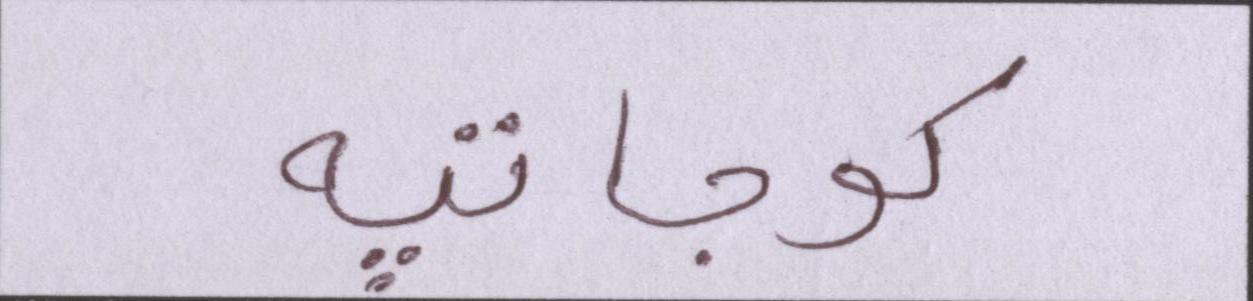 کوجاتپه